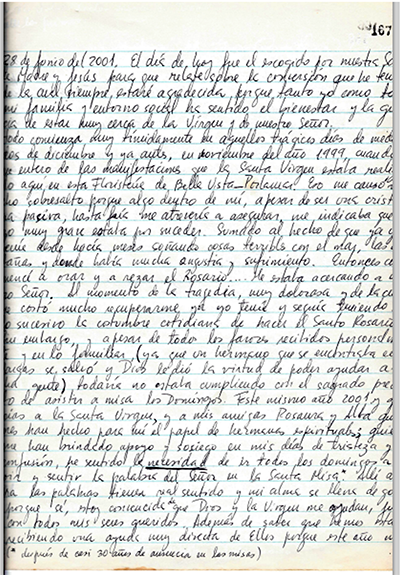 167
28 de Junio del 2001. El día de hoy fue el escogido por nuestra Sa
Madre y Jesús para que relate sobre la conversión que he ten
de la cual siempre, estaré agradecida, porque tanto yo como to
mi familia y entorno social ha sentido el bienestar y la g
de estar muy cerca de la Virgen y de nuestro Señor.
odo comienza muy tímidamente en aquellos trágicos días de media
os de diciembre y ya antes, en noviembre del año 1999, cuando
e entero de las manifestaciones que la Santa Virgen estaba reali
o aquí en esta Floristería de Bella Vista-Porlamar. Eso me causó
ho sobresalto porque algo dentro de mi, a pesar de ser una crist
a pasiva, hasta hoy me atrevería a asegurar, me indicaba que
o muy grave estaba por suceder. Sumado al hecho de que ya
enía desde hacía meses soñando cosas terribles con el mar, las
añas y donde había mucha angustia y sufrimiento. Entonces co
mencé a orar y a rezar el Rosario.... Me estaba acercando a
o Señor. Al momento de la tragedia, muy dolorosa y de la cu
costó mucho recuperarme, ya yo tenía y seguía teniendo
o sucesivo la costumbre cotidiana de hacer el Santo Rosario
in embargo, y a pesar de todo los favores recibidos personal
y en lo familiar, (ya que un hermano que se encontraba en
argas se salvó y Dios le dió la virtud de poder ayudar a
gente), todavía no estaba cumpliendo con el sagrado prec
o de asistir a misa los Domingos. Este mismo año 2001 y g
cias a la Santa Virgen, y a mis amigas Rosaura y Alba que
es han hecho para mi el papel de hermanas espirituales, quie
me han brindado apoyo y sosiego en mis días de tristeza y
onfusión, he sentido la necesidad de ir todos los domingos a
oir y sentir la palabra del Señor en la Santa Misa* Allí
las palabras tienen real sentido y mi alma se llena de go
porque sí, estoy convencida que Dios y la Virgen me ayudan, ju
con todos mis seres queridos. Además de saber que hemos esta
recibiendo una ayuda muy directa de Ellos porque este año
(* después de casi 30 años de ausencia en las misas)